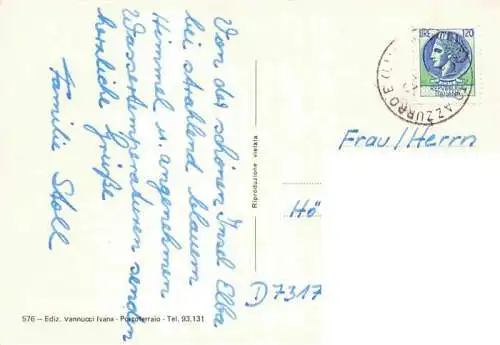 Von der schönen Insel Elba
bei strahlend blauem
Himmel u. angenehmen
Wassertemperaturen senden
herzliche Grüße
Familie Stoll
576 — Ediz. Vannucci Ivana - Portoferraio - Tel. 93.131
Riproduzione vietata
LIRE 120
AZZURRO E
Frau/Herrn
Hö
D 7317